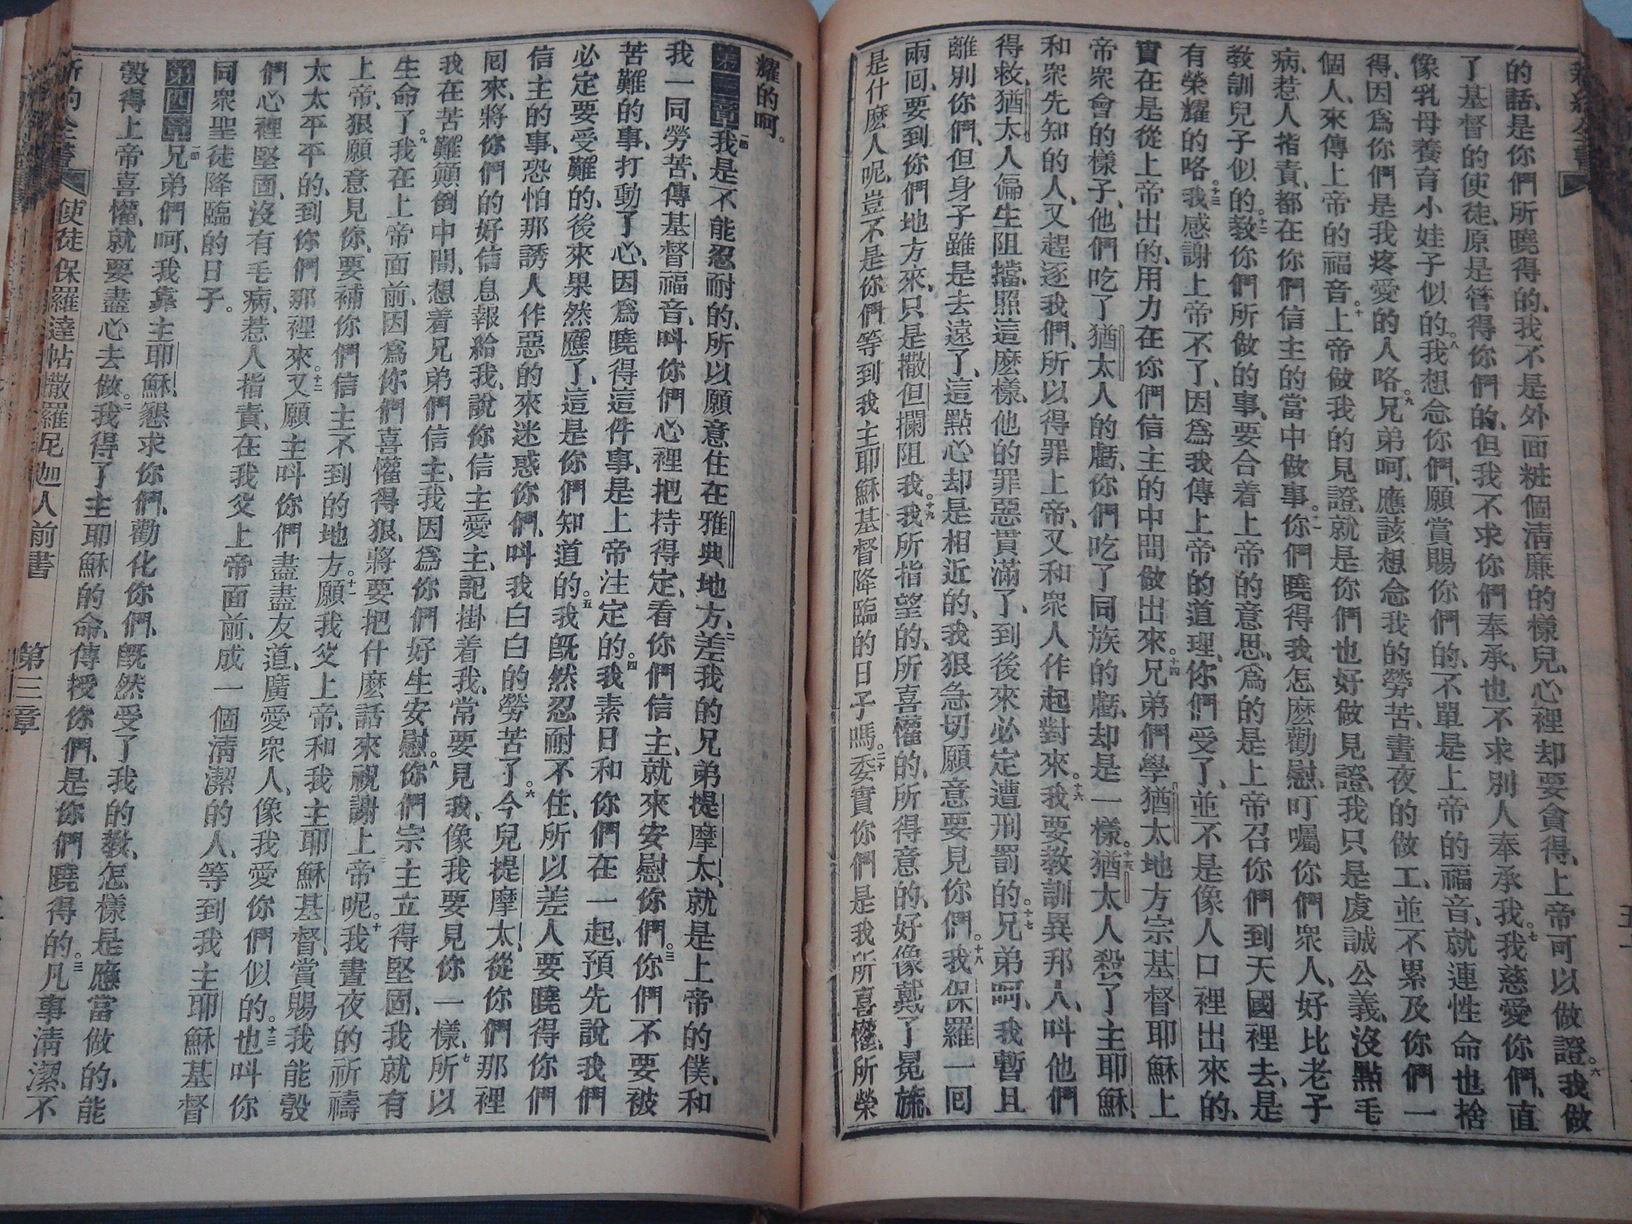 的話、是你們所曉得的、我不是外面粧個淸廉的樣兒、心裡却要貪得、上帝可以做證。六我做
了基督的使徒、原是管得你們的、但我不求你們奉承、也不求別人奉承我。七我慈愛你們、直
像乳母養育小娃子似的。八我想念你們、願賞賜你們的、不單是上帝的福音、就連性命也捨
得、因爲你們是我疼愛的人咯。九兄弟呵、應該想念我的勞苦、晝夜的做工、並不累及你們一
個人、來傳上帝的福音。十上帝做我的見證、就是你們也好做見證、我只是虔誠公義、沒點毛
病、惹人指責、都在你們信主的當中做事。十一你們曉得我怎麼勸慰、叮囑你們衆人、好比老子
教訓兒子似的。十二教你們所做的事、要合着上帝的意思、爲的是上帝召你們到天國裡去、是
有榮耀的咯。十三我感謝上帝不了、因爲我傳上帝的道理、你們受了、並不是像人口裡出來的、
實在是從上帝出的、用力在你們信主的中間做出來。十四兄弟們學猶太地方宗基督耶穌上
帝衆會的樣子、他們吃了猶太人的虧、你們吃了同族的虧、却是一樣。十五猶太人殺了主耶穌、
和衆先知的人、又趕逐我們、所以得罪上帝、又和衆人作起對來。十六我要教訓異邦人、叫他們
得救、猶太人偏生阻擋、照這麼樣、他的罪惡貫滿了、到後來必定遭刑罰的。十七兄弟呵、我暫且
離別你們、但身子雖是去遠了、這點心却是相近的、我狠急切願意要見你們。十八我保羅一回
兩回、要到你們地方來、只是撒但攔阻我。十九我所指望的、所喜懽的、所得意的、好像戴了冕旒、
是什麼人呢、豈不是你們等到我主耶穌基督降臨的日子嗎。二十委實你們是我所喜懽、所榮
耀的呵。
第三章一我是不能忍耐的、所以願意住在雅典地方。二差我的兄弟提摩太、就是上帝的僕、和
我一同勞苦、傳基督福音、叫你們心裡把持得定、看你們信主、就來安慰你們。三你們不要被
苦難的事、打動了心、因爲曉得這件事、是上帝注定的。四我素日和你們在一起、預先說我們
必定要受難的、後來果然應了、這是你們知道的。五我旣然忍耐不住、所以差人要曉得你們
信主的事、恐怕那誘人作惡的來迷惑你們、叫我白白的勞苦了。六今兒提摩太、從你們那裡
回來、將你們的好信息報給我、說你信主愛主、記掛着我、常要見我、像我要見你一樣。七所以
我在苦難顛倒中間、想着兄弟們信主、我因爲你們好生安慰。八你們宗主立得堅固、我就有
生命了。九我在上帝面前、因爲你們喜懽得狠、將要把什麼話來祝謝上帝呢。十我晝夜的祈禱
上帝、狠願意見你、要補你們信主不到的地方。十一願我父上帝、和我主耶穌基督、賞賜我能彀
太太平平的、到你們那裡來。十二又願主叫你們盡盡友道、廣愛衆人、像我愛你們似的。十三也叫你
們心裡堅固、沒有毛病、惹人指責、在我父上帝面前、成一個淸潔的人、等到我主耶穌基督
同衆聖徒降臨的日子。
第四章一兄弟們呵、我靠主耶穌、懇求你們、勸化你們、旣然受了我的教、怎樣是應當做的、能
彀得上帝喜懽、就要盡心去做。二我得了主耶穌的命、傳授你們、是你們曉得的。三凡事淸潔、不
新約全書 使徒保羅達帖撒羅尼迦人前書 第三章